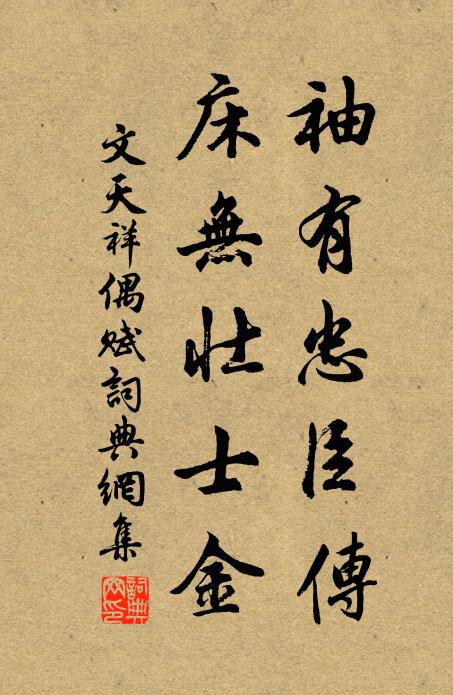 袖有忠臣傳
床無壯士金
文天祥偶賦詞典網集
詞典網印